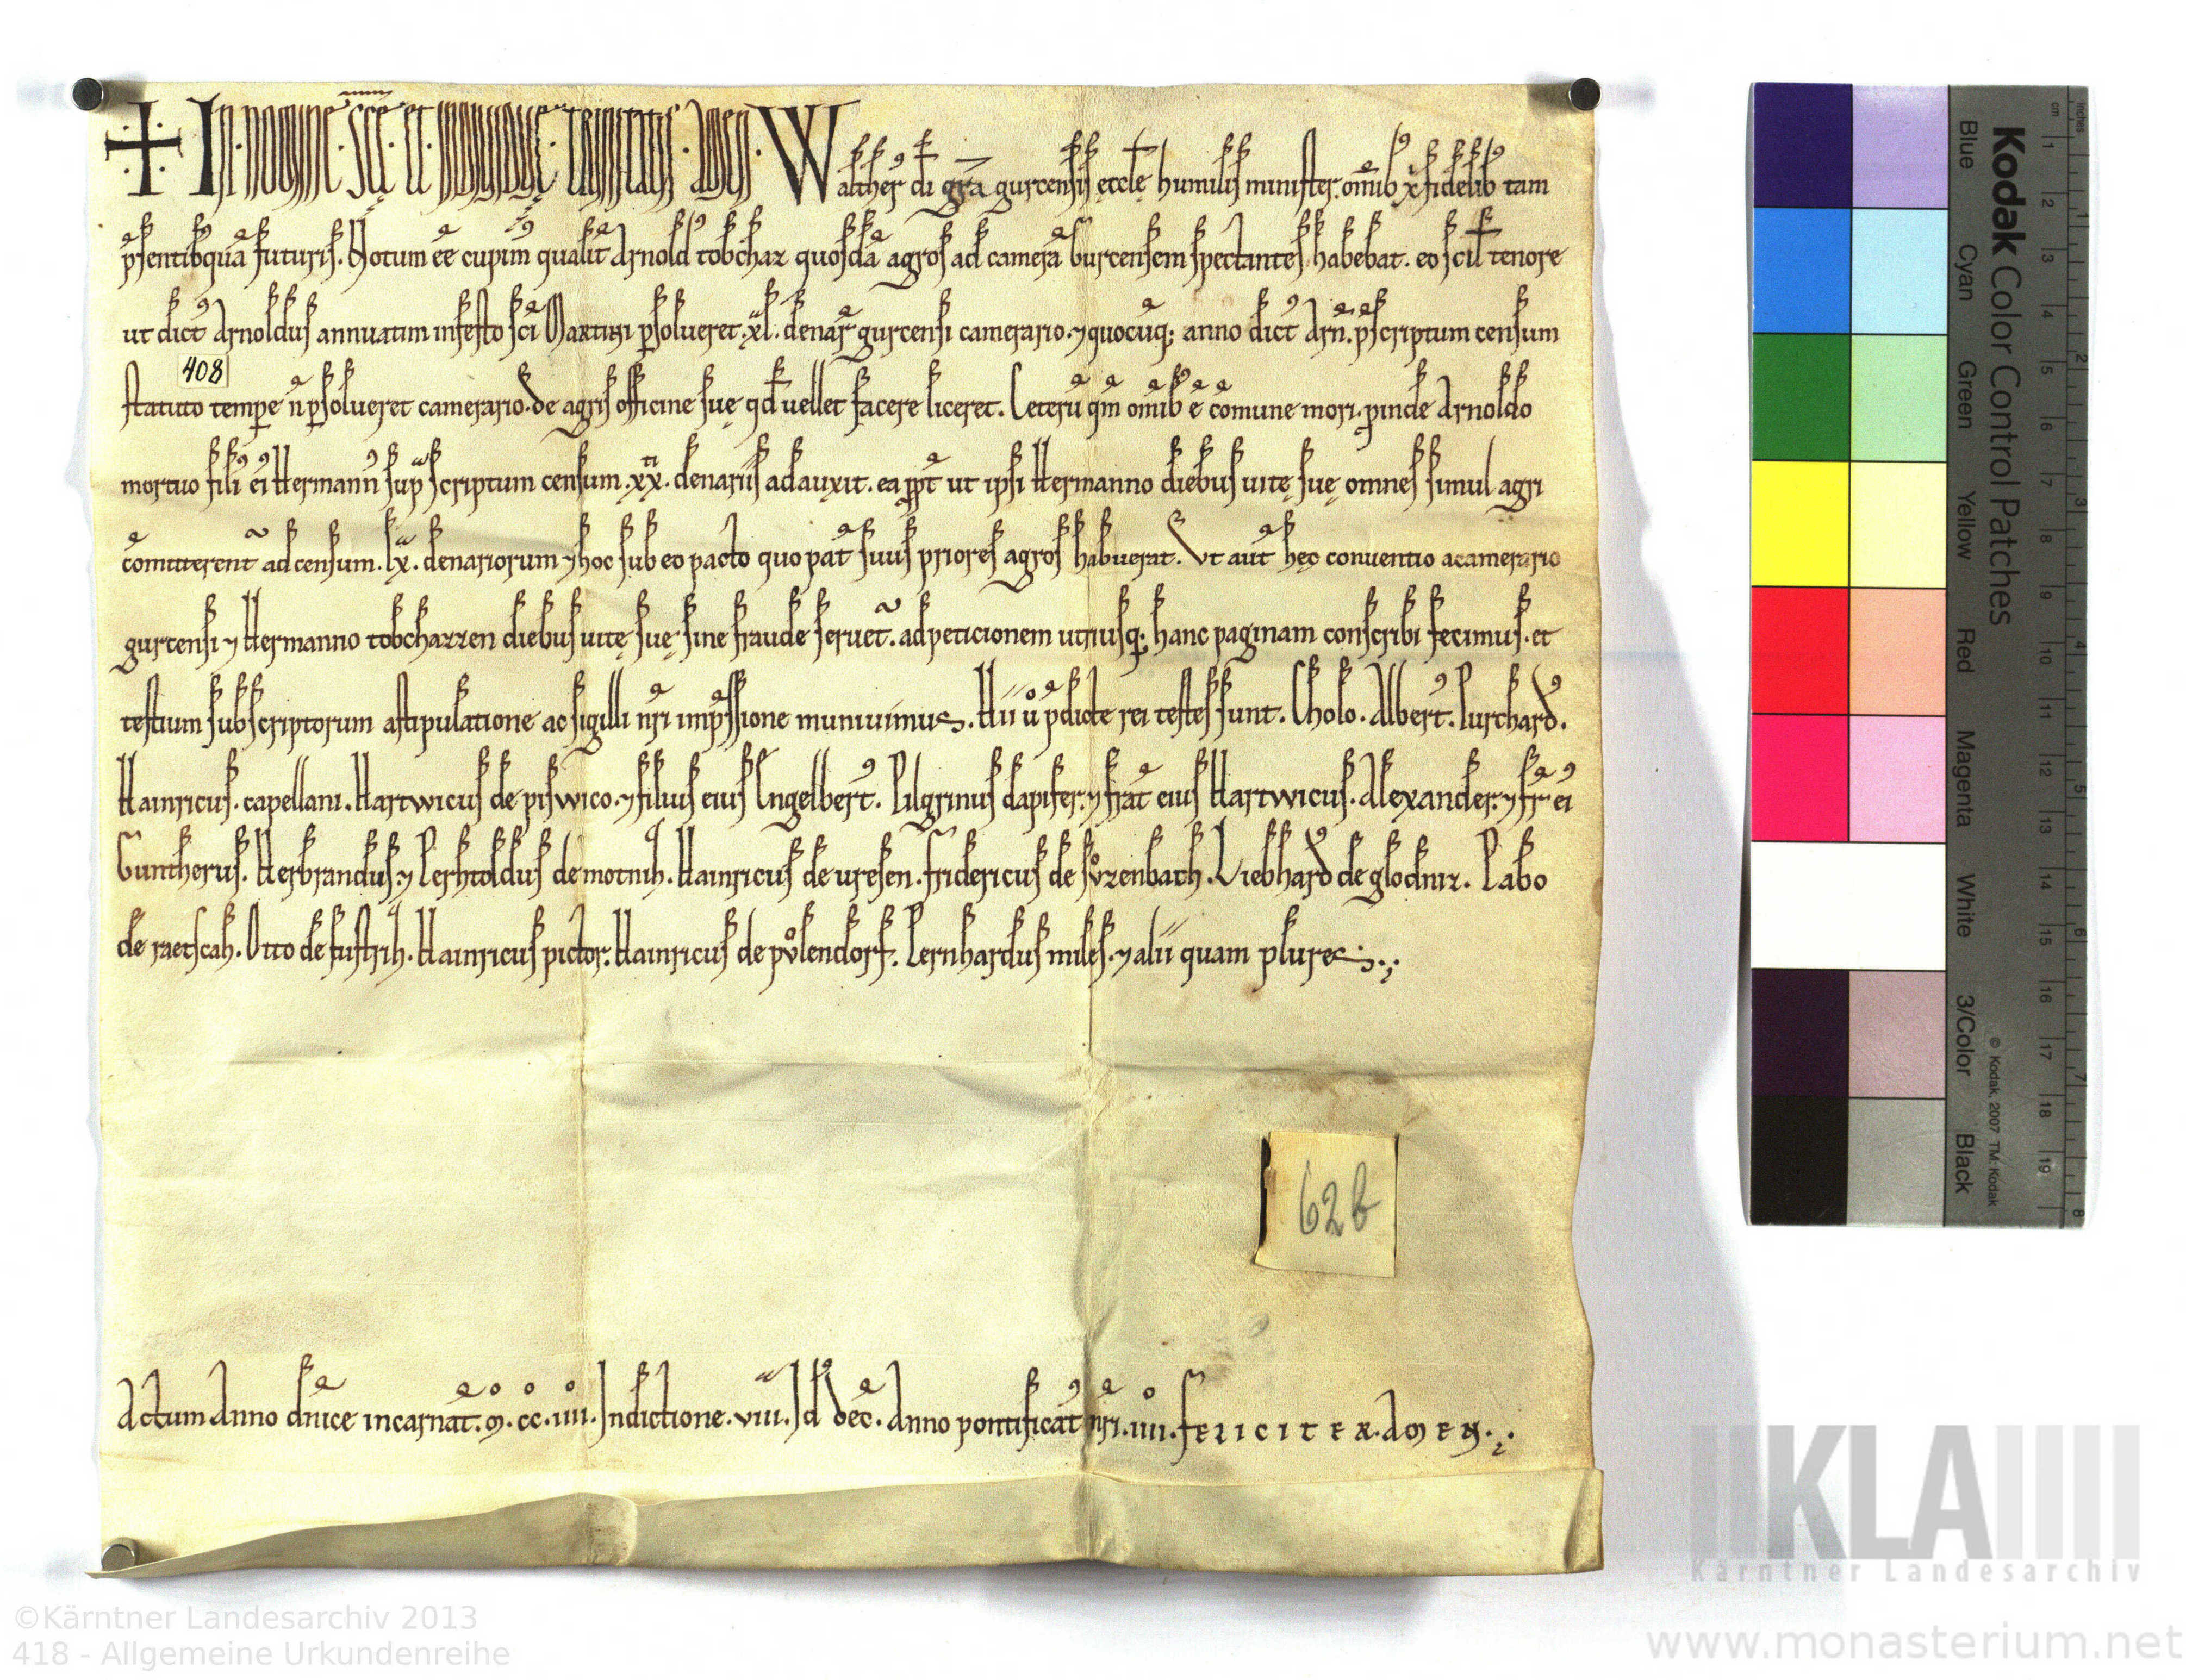 + In nomine scę et indiuiduę trinitatis amen. Walther di gra gurcensis ecclę humilis minister. omib xp fidelib tam
psentib qua futuris. Notum ee cupim qualit Arnold tobchaz quosda agros ad camera Gurcensem spectantes habebat. eo scil tenore
ut dict Arnoldus annuatim in festo sci Martini psolueret .xl. denar gurcensi camerario. ⁊ quocuq; anno dict Arn. pscriptum censum
408
statuto tempe n psolueret camerario. de agris officine suę qd uellet facere liceret. Ceteru qm omib e comune mori. pinde Arnoldo
mortuo fili ei Hermann sup scriptum censum .xx. denariis adauxit. ea ppt ut ipsi Hermanno diebus uitę suę omnes simul agri
comitterent ad censum .lx. denariorum ⁊ hoc sub eo pacto quo pat suus priores agros habuerat. Vt aut hęc conuentio a camerario
gurcensi ⁊ Hermanno tobchazzen diebus uitę suę sine fraude seruet. ad peticionem utriusq; hanc paginam conscribi fecimus. et
testium subscriptorum astipulatione ac sigilli nri impssione muniuimus. Hii u pdicte rei testes sunt. Cholo. Albert. Purchard.
Hainricus. capellani. Hartwicus de piswico. ⁊ filius eius Engelbert. Pilgrimus dapifer. ⁊ frat eius Hartwicus. Alexander. ⁊ fr ei
Guntherus. Herbrandus. ⁊ Perhtoldus de motnih. Hainricus de uresen. Fridericus de sozenbach. Liebhard de glodniz. Pabo
de raetscah. Otto de fustrih. Hainricus pictor. Hainricus de pvlendorf. Pernhardus miles. ⁊ alii quam plures.
62b
Actum Anno dnice incarnat. M. CC. IIII. Indictione. VIII. Id dec. Anno pontificat nri. IIII. FELICITER. AMEN.
Kodak Color Control Patches
Blue Cyan Green Yellow Red Magenta White 3/Color Black
© Kodak, 2007 TM: Kodak
cm 1 2 3 4 5 6 7 8 9 10 11 12 13 14 15 16 17 18 19
inches 1 2 3 4 5 6 7 8
KLA
Kärntner Landesarchiv
©Kärntner Landesarchiv 2013
418 - Allgemeine Urkundenreihe
www.monasterium.net